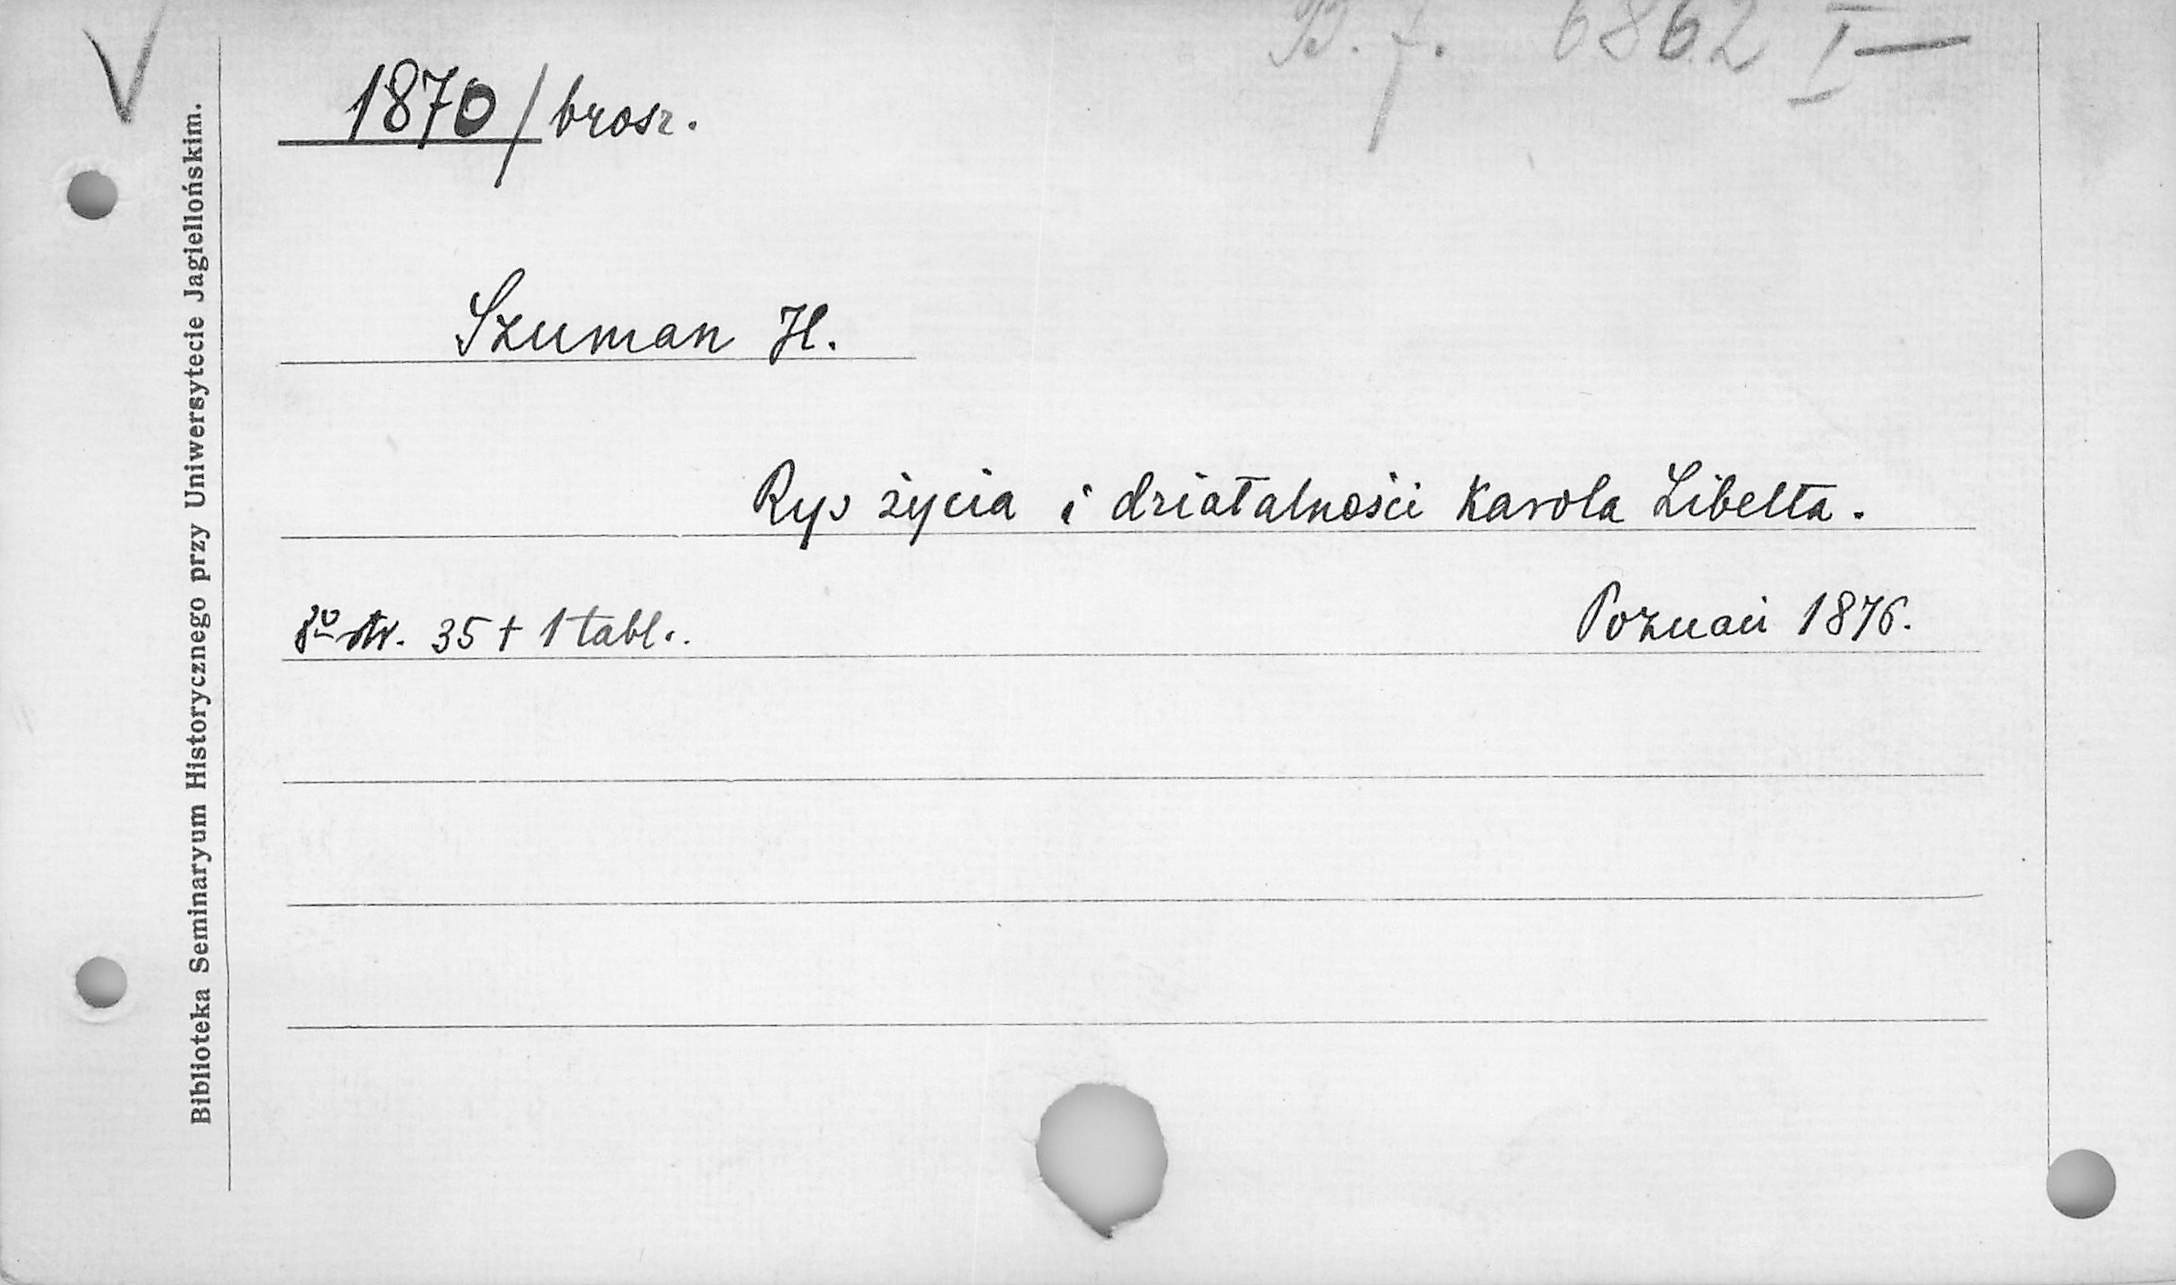 B. f. 6862 I
1870/brosz.
Szuman H.
Rys życia i działalności Karola Libelta.
8º str. 35 + 1 tabl.
Poznań 1876.
Biblioteka Seminaryum Historycznego przy Uniwersytecie Jagiellońskim.